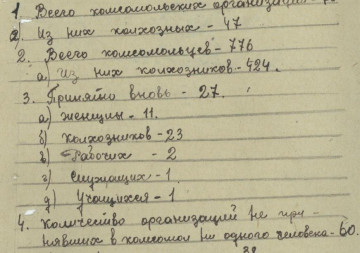 1. Всего комсомольских организаций -
а) Из них колхозных - 47
2. Всего комсомольцев - 776
а) Из них колхозников - 424.
3. Принято вновь - 27.
а) женщин - 11.
б) колхозников - 23
в) Рабочих - 2
г) Служащих - 1
д) Учащихся - 1
4. Количество организаций не при-
нявших в комсомол ни одного человека - 60.
38